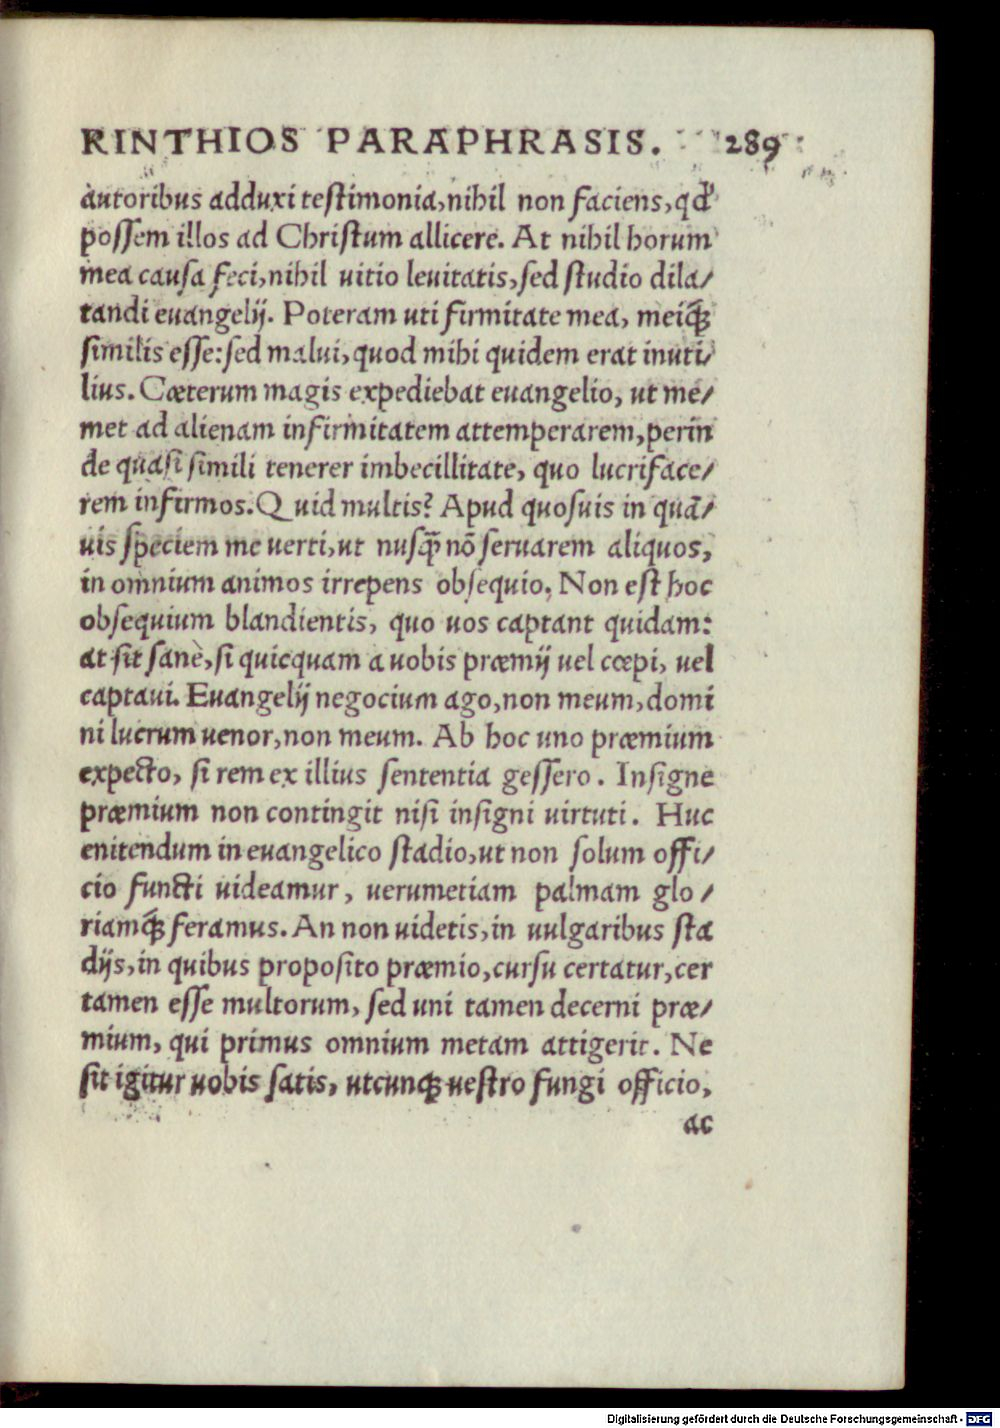 RINTHIOS PARAPHRASIS. 289
autoribus adduxi testimonia, nihil non faciens, qđ
possem illos ad Christum allicere. At nihil horum
mea causa feci, nihil uitio leuitatis, sed studio dila/
tandi euangelij. Poteram uti firmitate mea, meiq́;
similis esse: sed malui, quod mihi quidem erat inuti/
lius. Cæterum magis expediebat euangelio, ut me/
met ad alienam infirmitatem attemperarem, perin
de quasi simili tenerer imbecillitate, quo lucriface/
rem infirmos. Quid multis? Apud quosuis in quã/
uis speciem me uerti, ut nusq̃ nõ seruarem aliquos,
in omnium animos irrepens obsequio. Non est hoc
obsequium blandientis, quo uos captant quidam:
at sit sanè, si quicquam a uobis præmij uel cœpi, uel
captaui. Euangelij negocium ago, non meum, domi
ni lucrum uenor, non meum. Ab hoc uno præmium
expecto, si rem ex illius sententia gessero. Insigne
præmium non contingit nisi insigni uirtuti. Huc
enitendum in euangelico stadio, ut non solum offi/
cio functi uideamur, uerumetiam palmam glo/
riamq́; feramus. An non uidetis, in uulgaribus sta
dijs, in quibus proposito præmio, cursu certatur, cer
tamen esse multorum, sed uni tamen decerni præ/
mium, qui primus omnium metam attigerit. Ne
sit igitur uobis satis, utcunq; uestro fungi officio,
ac
Digitalisierung gefördert durch die Deutsche Forschungsgemeinschaft - DFG